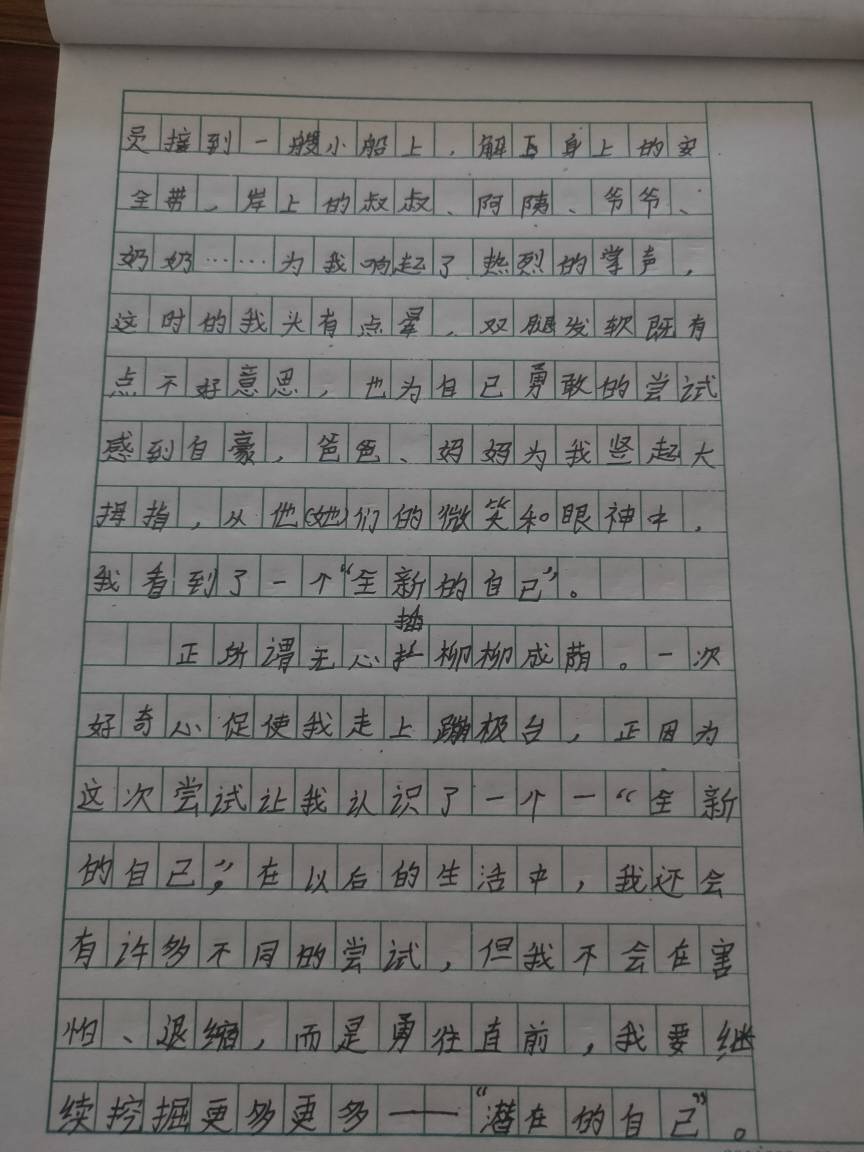 员接到一艘小船上，解下身上的安
全带，岸上的叔叔、阿姨、爷爷、
奶奶……为我响起了热烈的掌声，
这时的我头有点晕，双腿发软既有
点不好意思，也为自己勇敢的尝试
感到自豪，爸爸、妈妈为我竖起大
拇指，从他(她)们的微笑和眼神中，
我看到了一个“全新的自己”。
正所谓无心插柳柳成荫。一次
好奇心促使我走上蹦极台，正因为
这次尝试让我认识了一个一“全新
的自己”，在以后的生活中，我还会
有许多不同的尝试，但我不会在害
怕、退缩，而是勇往直前，我要继
续挖掘更多更多——“潜在的自己”。